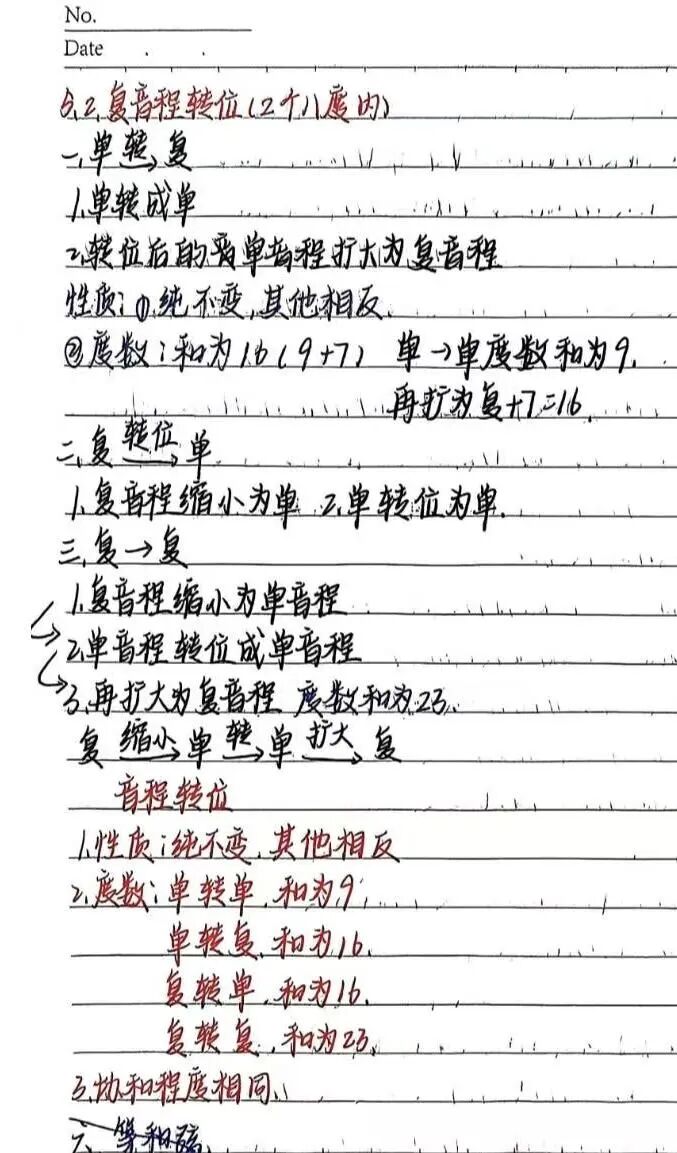 No.
Date
5.2.复音程转位(2个八度内)
一、单 转→ 复
1.单转成单
2.转位后的单音程扩大为复音程
性质:①纯不变,其他相反.
②度数:和为16(9+7) 单→单度数和为9.
再扩为复+7=16.
二、复 转位→ 单
1.复音程缩小为单 2.单转位为单.
三、复→复
1.复音程缩小为单音程
2.单音程转位成单音程
3.再扩大为复音程 度数和为23.
复 缩小→ 单 转→ 单 扩大→ 复
音程转位
1.性质:纯不变,其他相反
2.度数:单转单,和为9.
单转复,和为16.
复转单,和为16.
复转复,和为23.
3.协和程度相同.
六、等和弦.